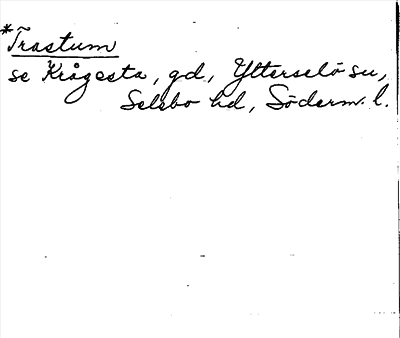 *Trastum
se Krågesta, gd, Ytterselö sn,
Selebo hd, Söderm. l.